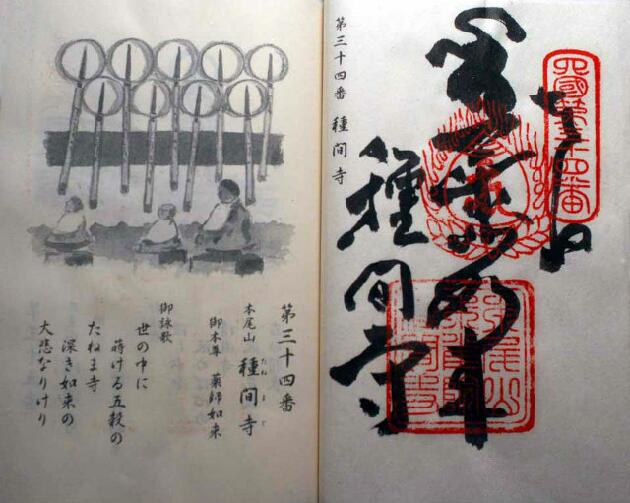 四國第三十四番
種間寺
第三十四番 種間寺
第三十四番
本尾山 種間寺
たねまじ
御本尊 薬師如来
御詠歌
世の中に
蒔ける五穀の
たねま寺
深き如来の
大悲なりけり